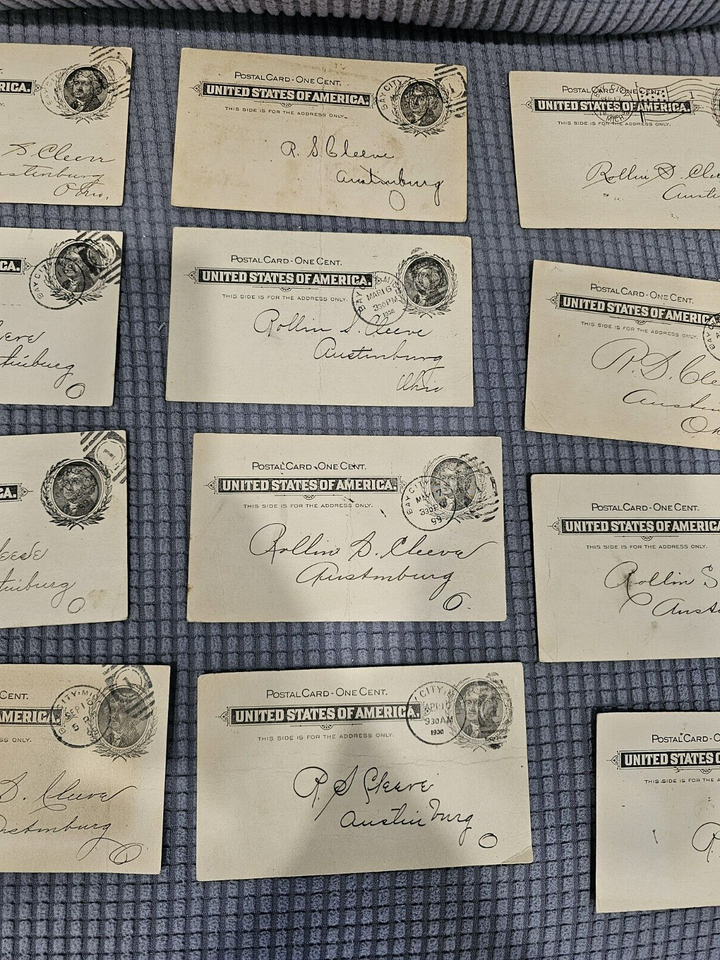 RICA.
S. Cleeve
Austinburg
Ohio.
POSTAL CARD - ONE CENT.
UNITED STATES OF AMERICA.
THIS SIDE IS FOR THE ADDRESS ONLY.
BAY CITY
R. S. Cleeve
Austinburg
O
POSTAL CARD - ONE CENT.
UNITED STATES OF AMERICA.
THIS SIDE IS FOR THE ADDRESS ONLY.
MICH.
1
Rollin S. Clee
Austi
CA.
BAY CITY
eeve
stinburg
O
POSTAL CARD - ONE CENT.
UNITED STATES OF AMERICA.
THIS SIDE IS FOR THE ADDRESS ONLY.
BAY CITY
MAR 16
Rollin S. Cleeve
Austinburg
Ohio
POSTAL CARD - ONE CENT.
UNITED STATES OF AMERICA
THIS SIDE IS FOR THE ADDRESS ONLY.
R. S. Cle
Austin
O
CA.
1
eese
stinburg
O
POSTAL CARD - ONE CENT.
UNITED STATES OF AMERICA.
THIS SIDE IS FOR THE ADDRESS ONLY.
BAY CITY
99
Rollin S. Cleeve
Austinburg
O.
POSTAL CARD - ONE CENT.
UNITED STATES OF AMERICA
THIS SIDE IS FOR THE ADDRESS ONLY.
Rollin S
Aust
CENT.
AMERICA.
SS ONLY.
BAY CITY, MICH
SEP
S. Cleeve
Austinburg
O
POSTAL CARD - ONE CENT.
UNITED STATES OF AMERICA.
THIS SIDE IS FOR THE ADDRESS ONLY.
CITY, M
930AM
1900
R. S. Cleeve
Austinburg
O
POSTAL CARD - O
UNITED STATES O
THIS SIDE IS FOR THE AD
R.